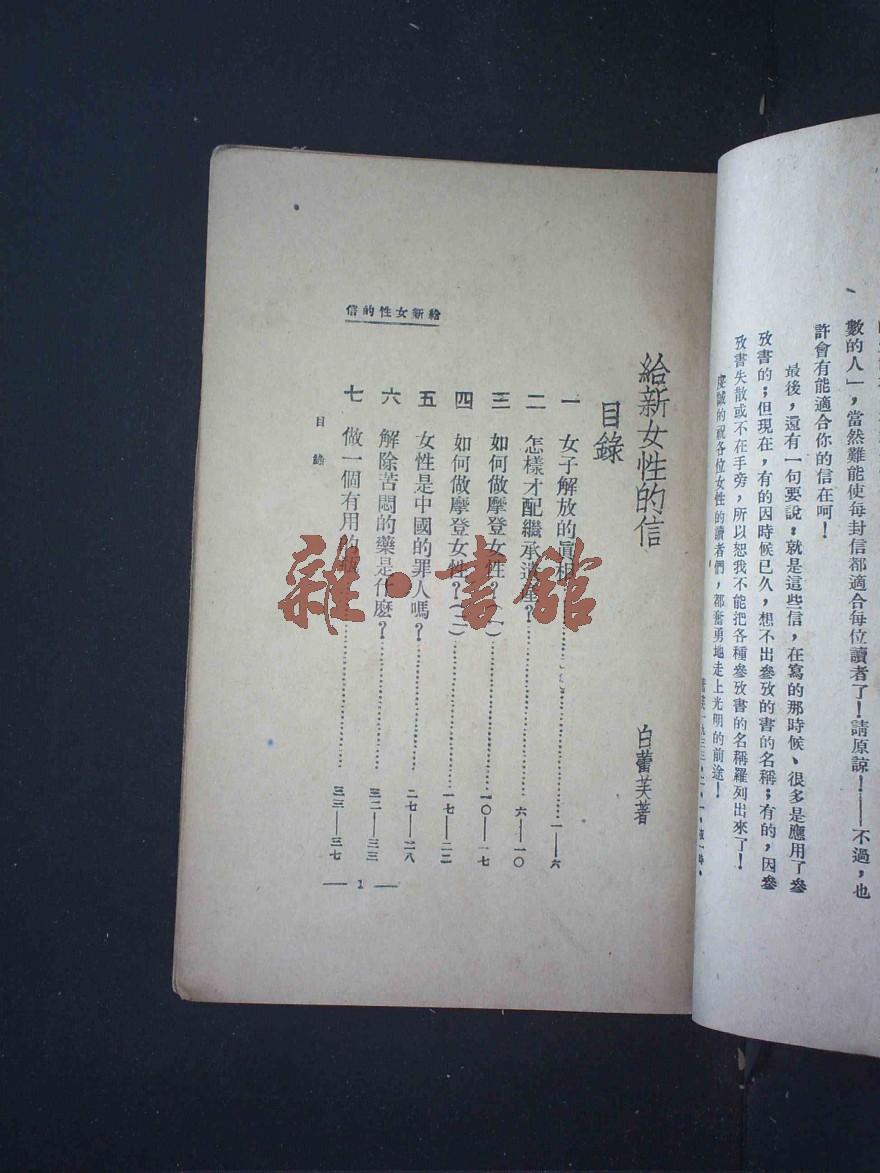 數的人」，當然難能使每封信都適合每位讀者了！請原諒！——不過，也
許會有能適合你的信在呵！
最後，還有一句要說：就是這些信，在寫的那時候、很多是應用了參
攷書的；但現在，有的因時候已久，想不出參攷的書的名稱；有的，因參
攷書失散或不在手旁，所以恕我不能把各種參攷書的名稱羅列出來了！
虔誠的祝各位女性的讀者們，都奮勇地走上光明的前途！
給新女性的信
白蕾芙著
目錄
一 女子解放的眞相 一——六
二 怎樣才配繼承遺產？ 六——一〇
三 如何做摩登女性？（一） 一〇——一七
四 如何做摩登女性？（二） 一七——二二
五 女性是中國的罪人嗎？ 二七——二八
六 解除苦悶的藥是什麼？ 三二——三三
七 做一個有用的 三三——三七
給新女性的信
目錄
— 1 —
雜·書館